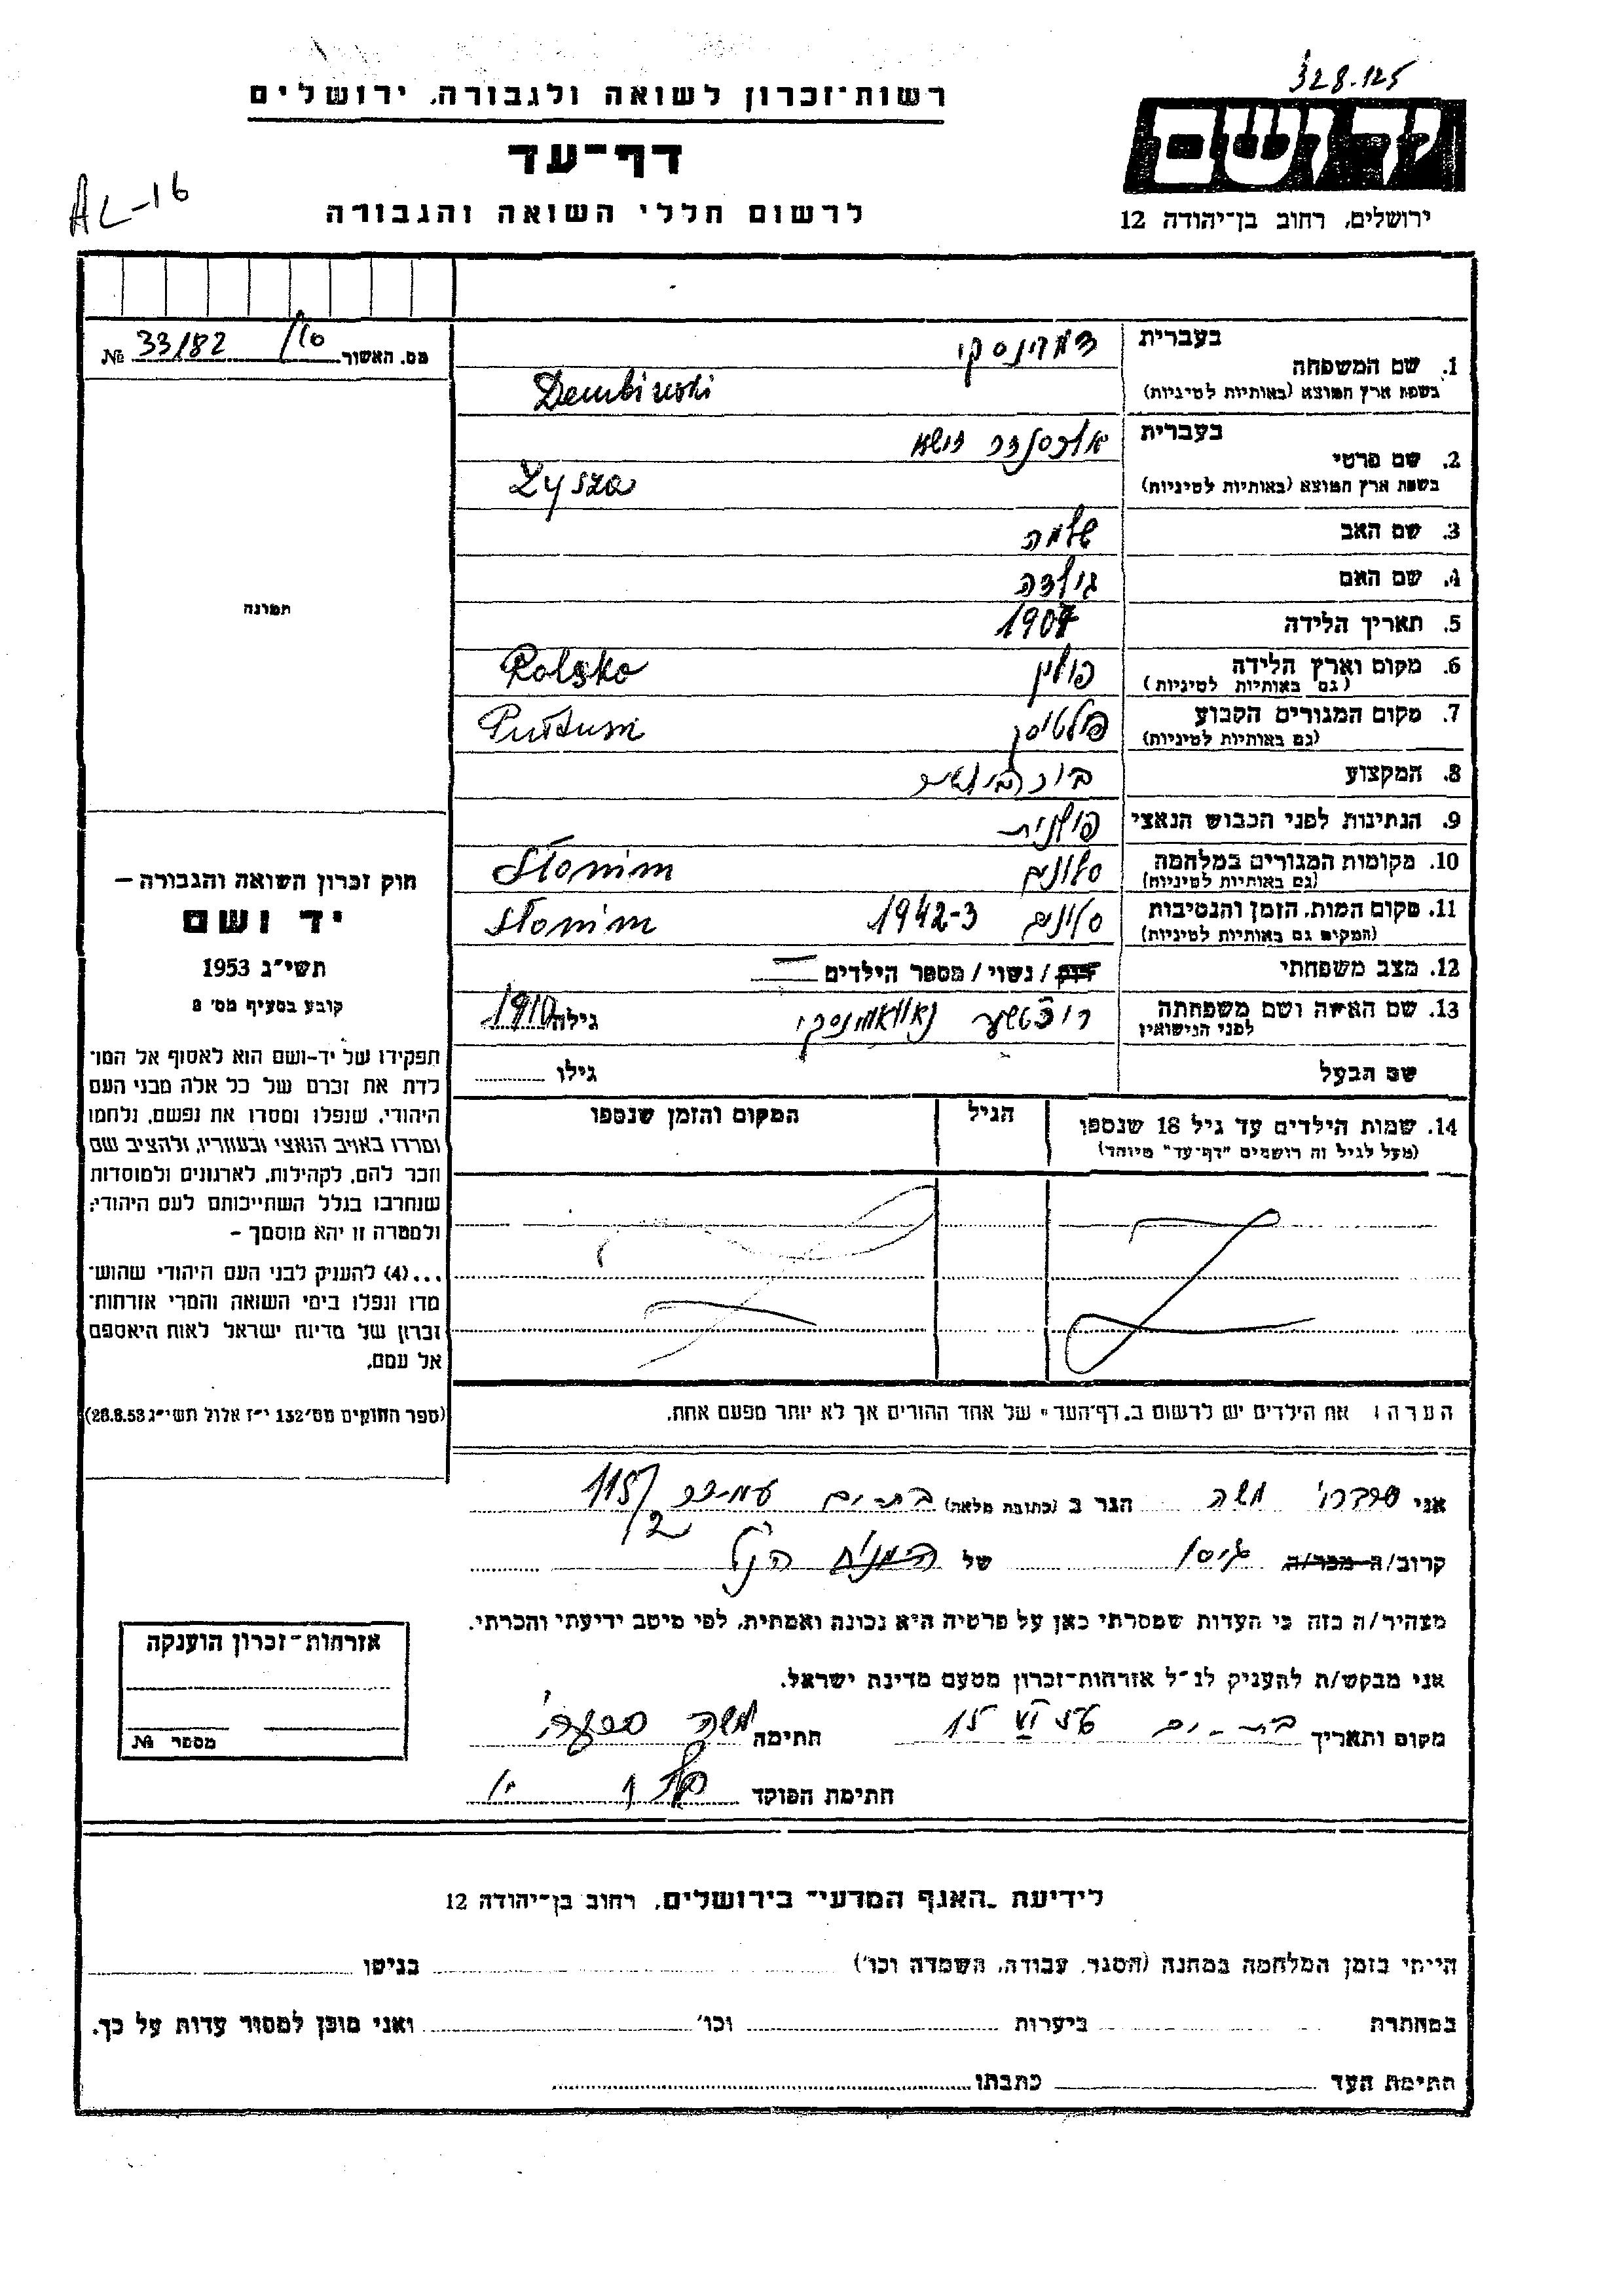 328.125
רשות־זכרון לשואה ולגבורה, ירושלים
יד ושם
דף־עד
AL-16
לרשום חללי השואה והגבורה
ירושלים, רחוב בן־יהודה 12
מס. האשור 10/ 33/82 №
בעברית
1. שם המשפחה
בשפת ארץ המוצא (באותיות לטיניות) Dembinski
בעברית
2. שם פרטי
בשפת ארץ המוצא (באותיות לטיניות) Zysza
3. שם האב שלמה
4. שם האם גולדה
5. תאריך הלידה 1907
6. מקום וארץ הלידה פולין Polsko
(גם באותיות לטיניות)
7. מקום המגורים הקבוע פולטוסק
(גם באותיות לטיניות)
8. המקצוע
9. הנתינות לפני הכבוש הנאצי פולנית
10. מקומות המגורים במלחמה סלונים Słonim
(גם באותיות לטיניות)
11. מקום המות, הזמן והנסיבות סלונים 1942-3 Słonim
(המקום גם באותיות לטיניות)
12. מצב משפחתי רווק / נשוי / מספר הילדים —
13. שם האשה ושם משפחתה גילה 1910
לפני הנישואין
שם הבעל גילו
14. שמות הילדים עד גיל 18 שנספו הגיל המקום והזמן שנספו
(מעל לגיל זה רושמים "דף־עד" מיוחד)
הערה: את הילדים יש לרשום ב„דף־העד" של אחד ההורים אך לא יותר מפעם אחת.
תמונה
חוק זכרון השואה והגבורה –
יד ושם
תשי״ג 1953
קובע בסעיף מס׳ 2
תפקידו של יד-ושם הוא לאסוף אל המו־
לדת את זכרם של כל אלה מבני העם
היהודי, שנפלו ומסרו את נפשם, נלחמו
ומרדו באויב הנאצי ובעוזריו, ולהציב שם
וזכר להם, לקהילות, לארגונים ולמוסדות
שנחרבו בגלל השתייכותם לעם היהודי;
ולמטרה זו יהא מוסמך –
...(4) להעניק לבני העם היהודי שהוש־
מדו ונפלו בימי השואה והמרי אזרחות־
זכרון של מדינת ישראל לאות היאספם
אל עמם.
(ספר החוקים מס׳ 132 י״ז אלול תשי״ג 28.8.53)
אני משה הגר ב (כתובת מלאה) בת-ים עמידר 115/2
קרוב/ה מכר/ה גיסו של המנוח הנ״ל
מצהיר/ה בזה כי העדות שמסרתי כאן על פרטיה היא נכונה ואמתית, לפי מיטב ידיעתי והכרתי.
אני מבקש/ת להעניק לנ״ל אזרחות־זכרון מטעם מדינת ישראל.
מקום ותאריך בת-ים 15 VI חתימה משה
חתימת הפוקד
אזרחות־זכרון הוענקה
מספר №
לידיעת „האגף המדעי" בירושלים, רחוב בן־יהודה 12
הייתי בזמן המלחמה במחנה (הסגר, עבודה, השמדה וכו׳) בגיטו
במחתרת ביערות וכו׳ ואני מוכן למסור עדות על כך.
חתימת העד כתבתו